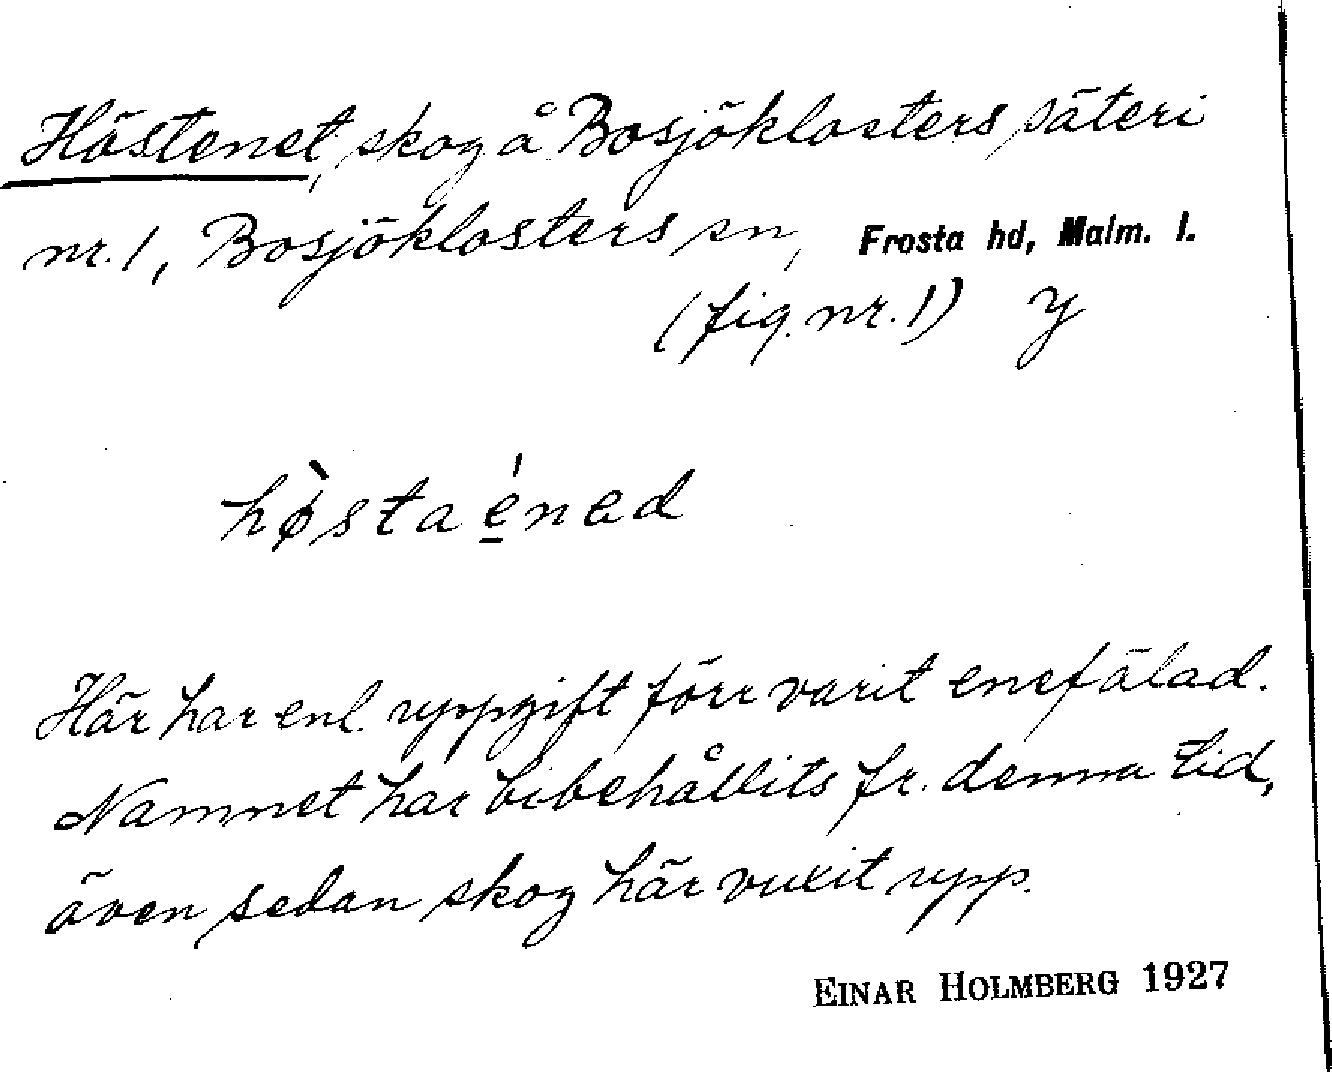 Höstenet, skog å Bosjöklosters säteri
nr. 1, Bosjöklosters sn, Frosta hd, Malm. l.
(fig. nr. 1) y
hø̀sta énad
Här har enl. uppgift förr varit enefälad.
Namnet har bibehållits fr. denna tid,
även sedan skog här vuxit upp.
EINAR HOLMBERG 1927